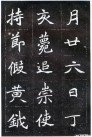 月廿六日丁
亥薨追崇使
持節假黃鉞